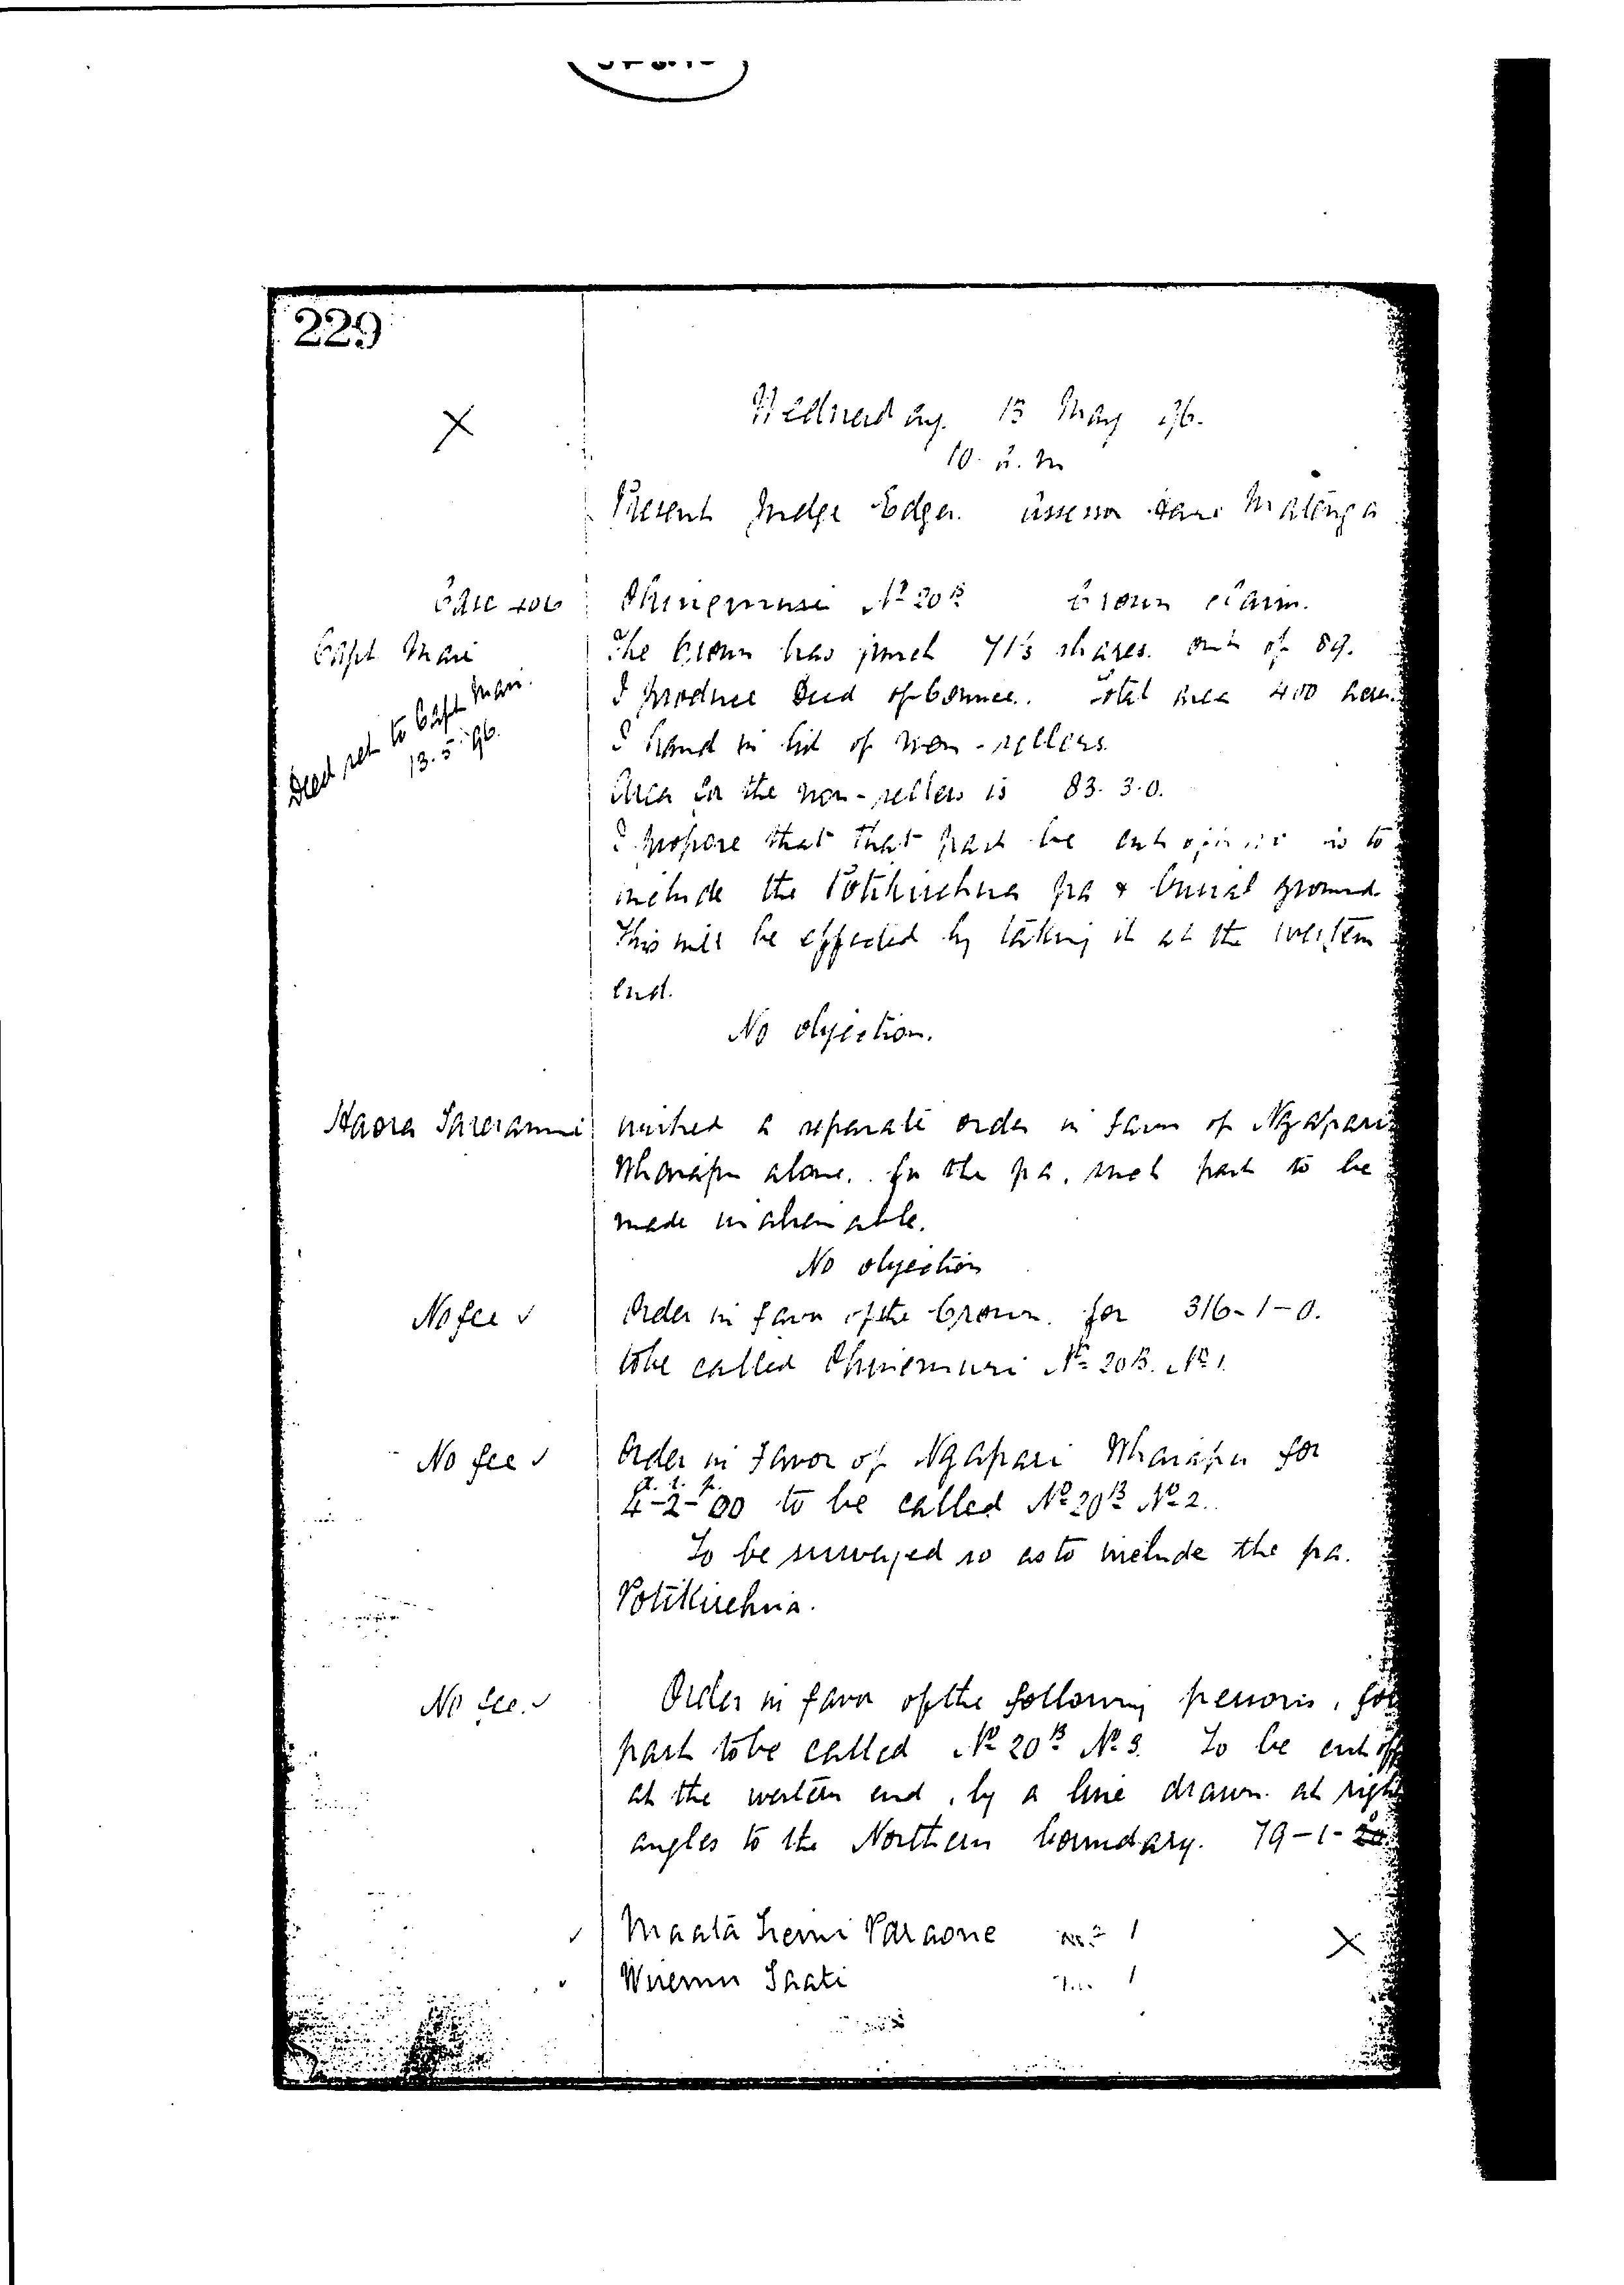 229
Wednesday. 13 May 96.
10. a. m
Present Judge Edger. Assessor Matenga
Case 406 Ohinemuri No 20B Crown claim.
Capt Mair The Crown has purch 71⅓ shares. out of 89.
Deed ret to Capt Mair.
13.5.96.
I produce Deed of Convce. Total area 400 acres.
I hand in list of non-sellers.
Area for the non-sellers is 83. 3. 0.
I propose that that part be cut off so as to
include the Potikirehua pa & burial ground.
This will be effected by taking it at the western
end.
No objection.
Haora Tareranui wished a separate order in favor of Ngapari
Wharapu alone. for the pa, such part to be
made inalienable.
No objection
No fee ✓ Order in favor of the Crown. for 316-1-0.
to be called Ohinemuri No 20B. No 1.
No fee ✓ Order in favor of Ngapari Wharapu for
a. r. p.
4-2-00 to be called No 20B No 2.
To be surveyed so as to include the pa.
Potikirehua.
No fee. ✓ Order in favor of the following persons, for
part to be called No 20B No 3. To be cut off
at the western end, by a line drawn at right
angles to the Northern boundary. 79-1-0
✓ Maata Paraone 1
✓ Wiremu Taati 1